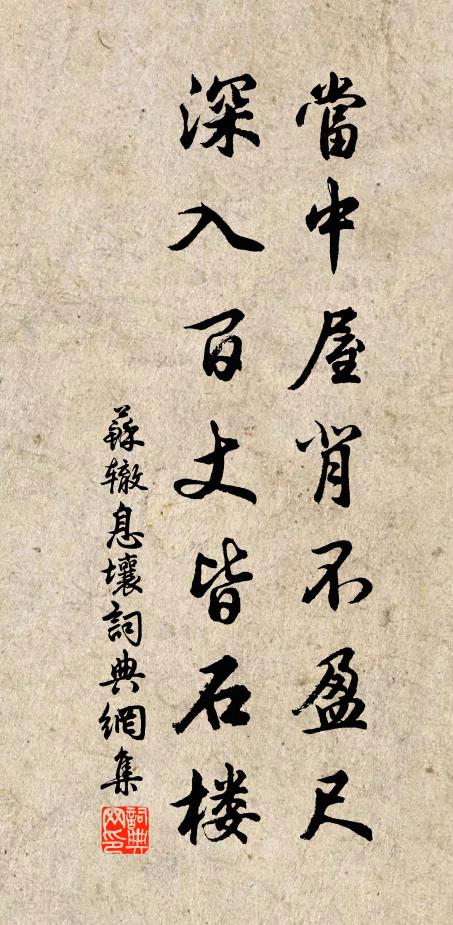 當中屋肖不盈尺
深入百丈皆石楼
蘇辙息壤詞典網集
詞典网印